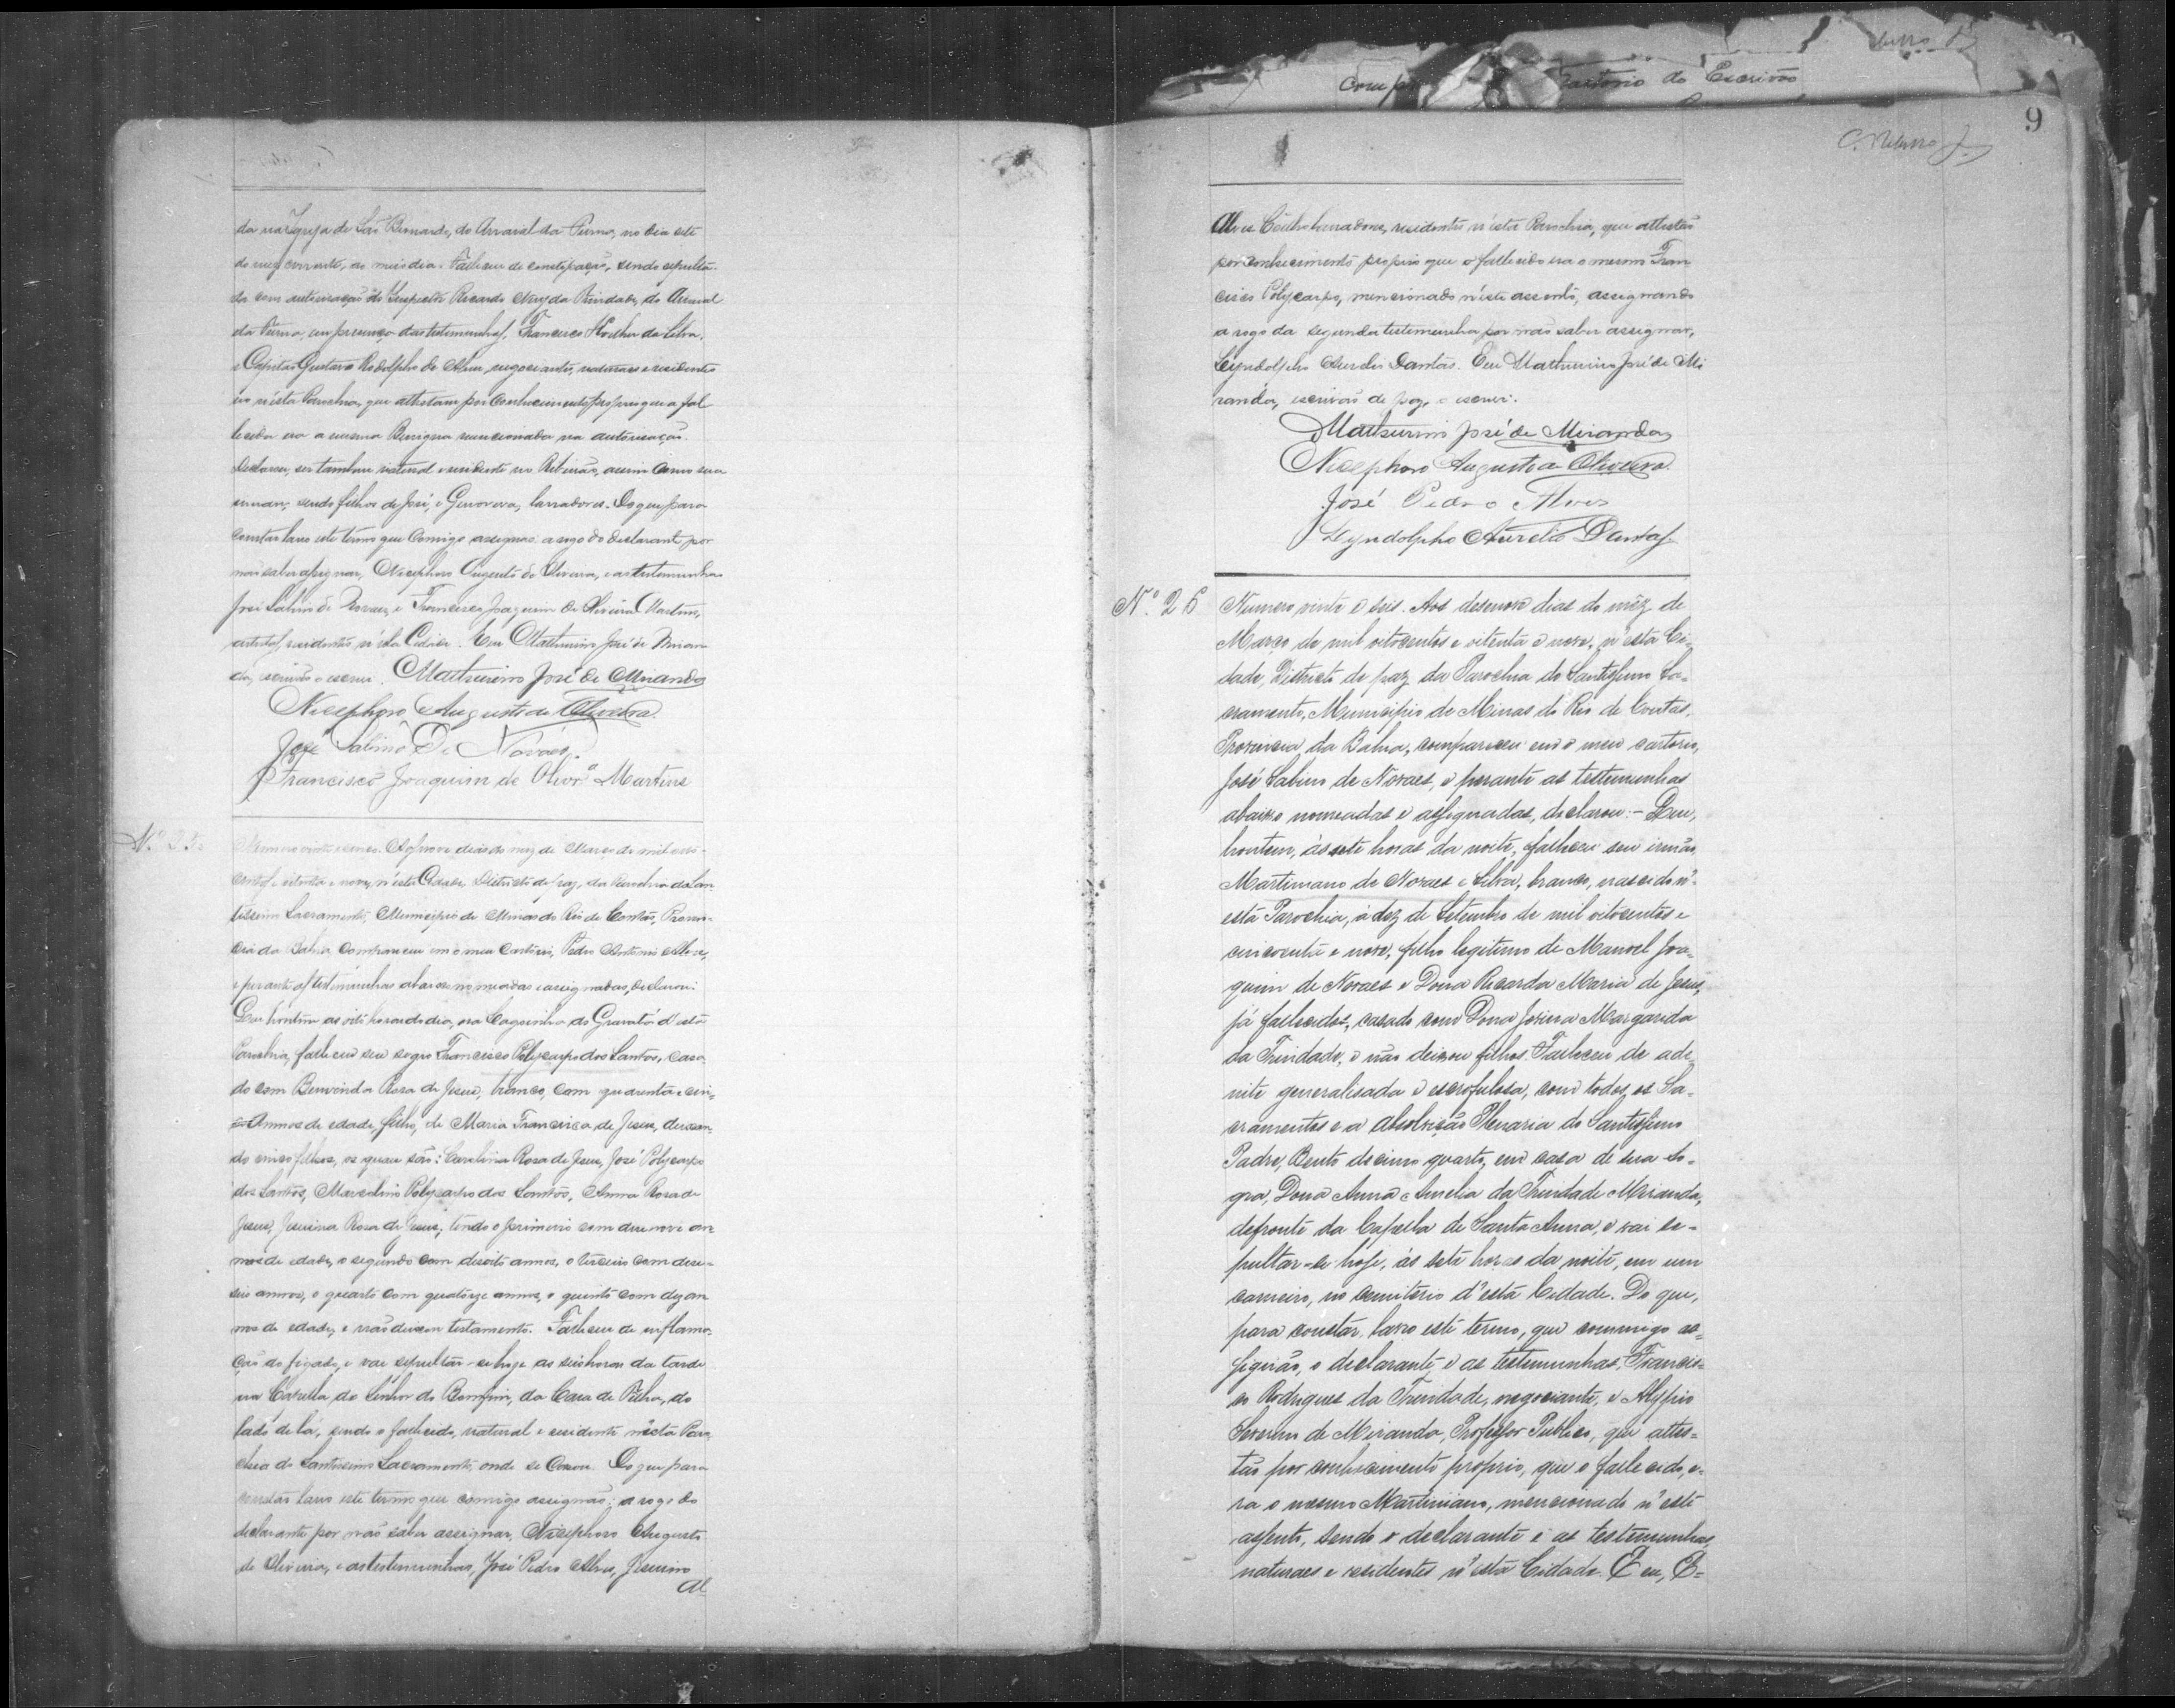 da na Igreja de São Bernardo, do Arraial da Furna, no dia sete
do mez corrente, ao meio dia. Falleceu de constipação, sendo sepulta-
da com autorisação do Inspector Ricardo da Trindade, do Arraial
da Furna, em presença das testemunhas, Francisco da Silva,
e Capitão Gustavo Rodolpho de negociantes, naturaes e residentes
n'esta Parochia, que attestam por conhecimento proprio que a fal-
lecida era a mesma Benigna mencionada na autorisação.
Declarou, ser tambem natural e residente no Ribeirão, assim como sua
irman, sendo filhos de José, e Genoveva, lavradores. Do que, para
constar lavro este termo que comigo assignão a rogo do declarante por
não saber assignar, Nicephoro Augusto de Oliveira, e as testemunhas
José Sabino de Novaes, e Francisco Joaquim de Oliveira Martins,
artistas, residentes n'esta Cidade. Eu Mathurino José de Miran-
da, escrivão o escrevi. Mathurino José de Miranda
Nicephoro Augusto de Oliveira
José Sabino De Novaes.
Francisco Joaquim de Olivrª Martins
Nº 25.
Numero vinte e cinco. Aos nove dias do mez de Março de mil oito-
centos e oitenta e nove, n'esta Cidade, Districto de paz, da Parochia do San-
tissimo Sacramento, Municipio de Minas do Rio de Contas, Provin-
cia da Bahia, compareceu em o meu Cartorio, Pedro Antonio Alves,
e perante as testemunhas abaixo nomeadas e assignadas, declarou:
Que hontem as oito horas do dia, na Lagoinha do Gravatá d'esta
Parochia, falleceu seu sogro Francisco Polycarpo dos Santos, casa-
do com Benvinda Rosa de Jesus, branco, com quarenta e cin-
co Annos de edade, filho, de Maria Francisca de Jesus, deixan-
do cinco filhos, os quaes são: Carolina Rosa de Jesus, José Polycarpo
dos Santos, Marcolino Polycarpo dos Santos, Anna Rosa de
Jesus, Jesuina Rosa de Jesus; tendo o primeiro com desenove an-
nos de edade, o segundo com desoito annos, o terceiro com dese-
seis annos, o quarto com quatorze annos, o quinto com dez an-
nos de edade, e não deixou testamento. Falleceu de inflama-
ção do figado, e vae sepultar-se hoje as seis horas da tarde
na Capella do Senhor do Bomfim, da Casa de Pedra, do
lado de lá, sendo o fallecido, natural e residente n'esta Paro-
chia do Santissimo Sacramento, onde se casou. Do que para
constar lavro este termo que comigo assignão; a rogo do
declarante por não saber assignar, Nicephoro Augusto
de Oliveira, e as testemunhas, José Pedro Alves, Jesuino
Al
Comp Cartorio do Escrivão
9
Alves Coelho lavradores, residentes n'esta Parochia, que attestão
por conhecimento proprio que o fallecido era o mesmo Fran-
cisco Polycarpo, mencionado n'este assento, assignando
a rogo da segunda testemunha por não saber assignar,
Lyndolpho Aurelio Dantas. Eu Mathurino José de Mi-
randa, escrivão de paz, o escrevi.
Mathurino José de Miranda
Nicephoro Augusto de Oliveira
José Pedro Alves
Lyndolpho Aurelio Dantas
Nº 26
Numero vinte e seis. Aos desenove dias do mêz de
Março de mil oitocentos e oitenta e nove, n'esta Ci-
dade, Districto de paz da Parochia do Santissimo Sa-
cramento, Municipio de Minas do Rio de Contas,
Provincia da Bahia, compareceu em o meu cartorio,
José Sabino de Novaes, e perante as testemunhas
abaixo nomeadas e assignadas, declarou: - Que,
hontem, ás sete horas da noite, falleceu seu irmão,
Martiniano de Novaes e Silva, branco, nascido n'-
esta Parochia, á dez de Setembro de mil oitocentos e
cincoenta e nove, filho legitimo de Manoel Joa-
quim de Novaes e Dona Ricarda Maria de Jesus,
já fallecidos, casado com Dona Jovina Margarida
da Trindade, e não deixou filhos. Falleceu de ade-
nite generalisada e escrofulosa, com todos os Sa-
cramentos e a absolvição Plenaria do Santissimo
Padre, Bento decimo quarto, em casa de sua So-
gra, Dona Anna Amelia da Trindade Miranda,
defronte da Capella de Santa Anna, e vai se-
pultar-se hoje, ás sete horas da noite, em um
carneiro, no cemiterio d'esta Cidade. Do que,
para constar, lavro este termo, que commigo as-
signão, o declarante e as testemunhas, Francis-
co Rodrigues da Trindade, negociante, e Alypio
Severino de Miranda, Professor Publico, que attes-
tão por conhecimento proprio, que o fallecido, e-
ra o mesmo Martiniano, mencionado n'este
assento, sendo o declarante e as testemunhas,
naturaes e residentes n'esta Cidade. E eu, E-